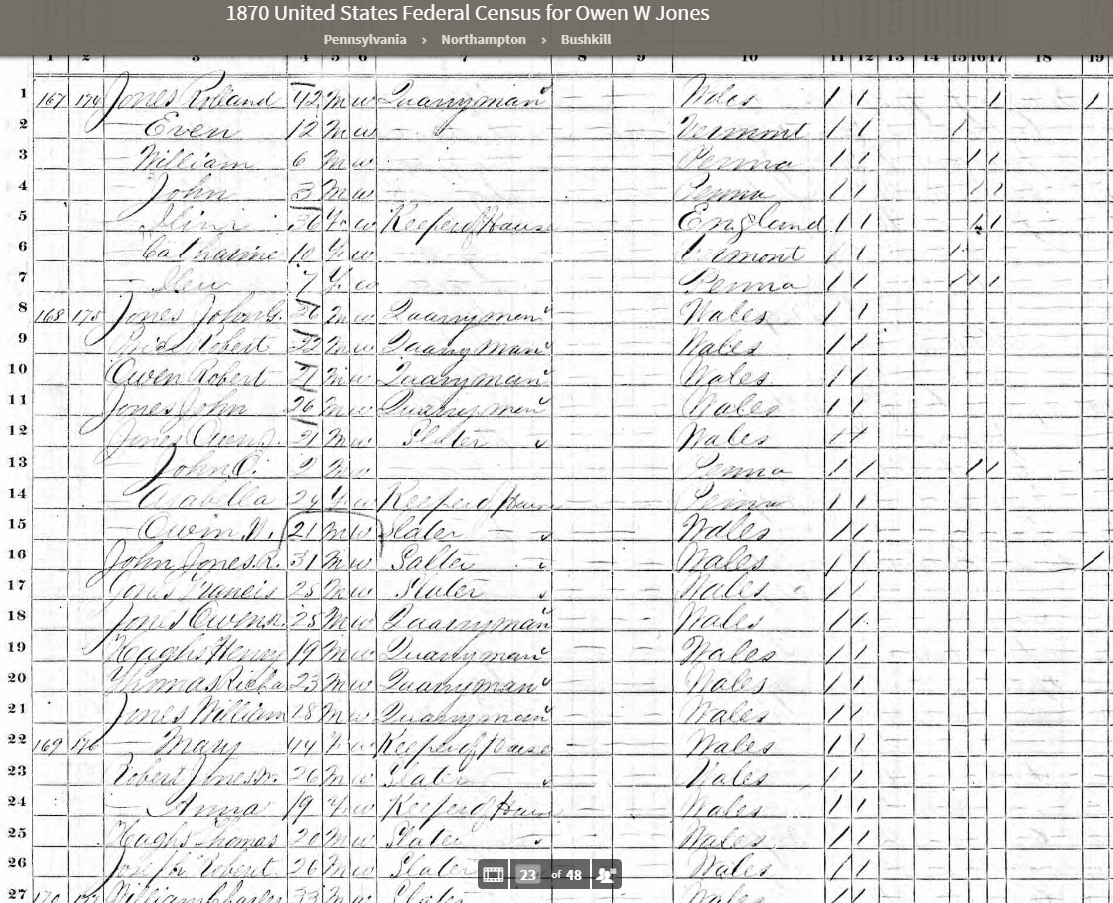 1870 United States Federal Census for Owen W Jones
Pennsylvania › Northampton › Bushkill
1 2 3 4 5 6 7 8 9 10 11 12 13 14 15 16 17 18 19
1 167 174 Jones Rolland 42 M W Quarryman — — Wales / / / /
2 — Even 12 M W — Vermont / / /
3 — William 6 M W Penna / / / /
4 — John 3 M W Penna / / / /
5 36 F W Keeper of House England / / /
6 — Catharine 10 F W Vermont / / /
7 7 F W Penna / / / / /
8 168 175 Jones John G. 26 M W Quarryman Wales / /
9 Robert 22 M W Quarryman Wales / /
10 Owen Robert 21 M W Quarryman Wales / /
11 Jones John 26 M W Quarryman Wales / /
12 Jones Owen 21 M W Slater Wales / /
13 — John O. 2 M W Penna / / / /
14 — Arabella 24 F W Keeper of House Penna / /
15 — Owen W. 21 M W Slater Wales / /
16 John Jones R. 31 M W Salter Wales / / /
17 Francis 25 M W Slater Wales / /
18 Jones Owen 25 M W Quarryman Wales / /
19 Hughs Henry 19 M W Quarryman Wales / /
20 Thomas Richa 23 M W Quarryman Wales / /
21 Jones William 28 M W Quarryman Wales / /
22 169 176 — Mary 44 F W Keeper of House Wales / /
23 Robert Jones 26 M W Slater Wales / /
24 — Anna 19 F W Keeper of House Wales / /
25 Hughs Thomas 20 M W Slater Wales / /
26 Joseph Robert 26 M W Slater Wales / /
27 170 177 William Charles 33 M W Slater Wales / /
23 of 48